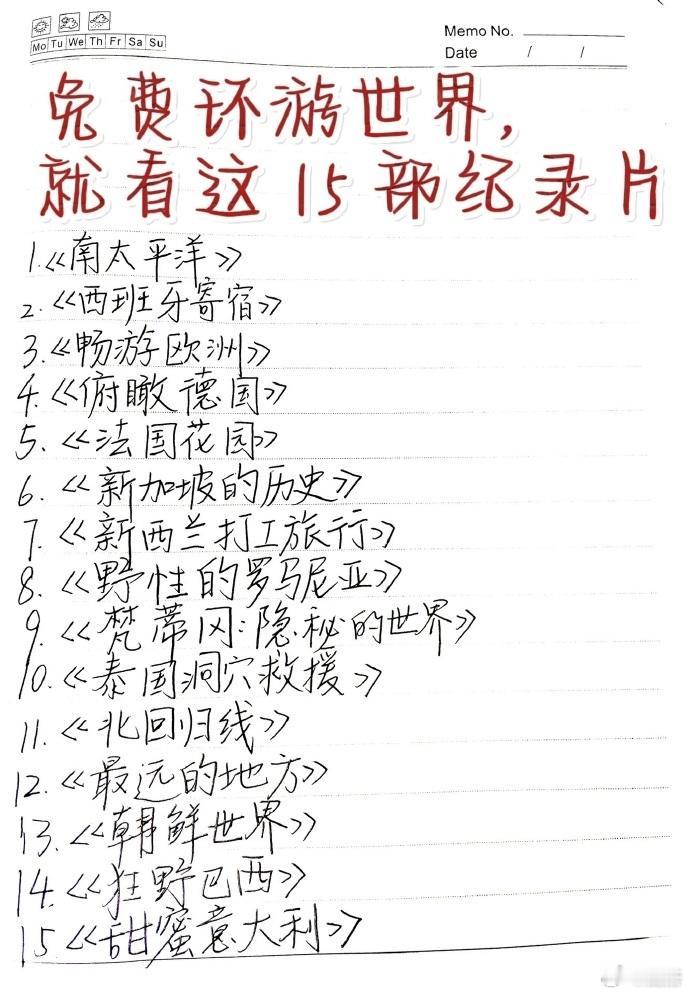 Mo Tu We Th Fr Sa Su
Memo No.
Date / /
免费环游世界,
就看这15部纪录片
1.《南太平洋》
2.《西班牙寄宿》
3.《畅游欧洲》
4.《俯瞰德国》
5.《法国花园》
6.《新加坡的历史》
7.《新西兰打工旅行》
8.《野性的罗马尼亚》
9.《梵蒂冈:隐秘的世界》
10.《泰国洞穴救援》
11.《北回归线》
12.《最远的地方》
13.《朝鲜世界》
14.《狂野巴西》
15《甜蜜意大利》